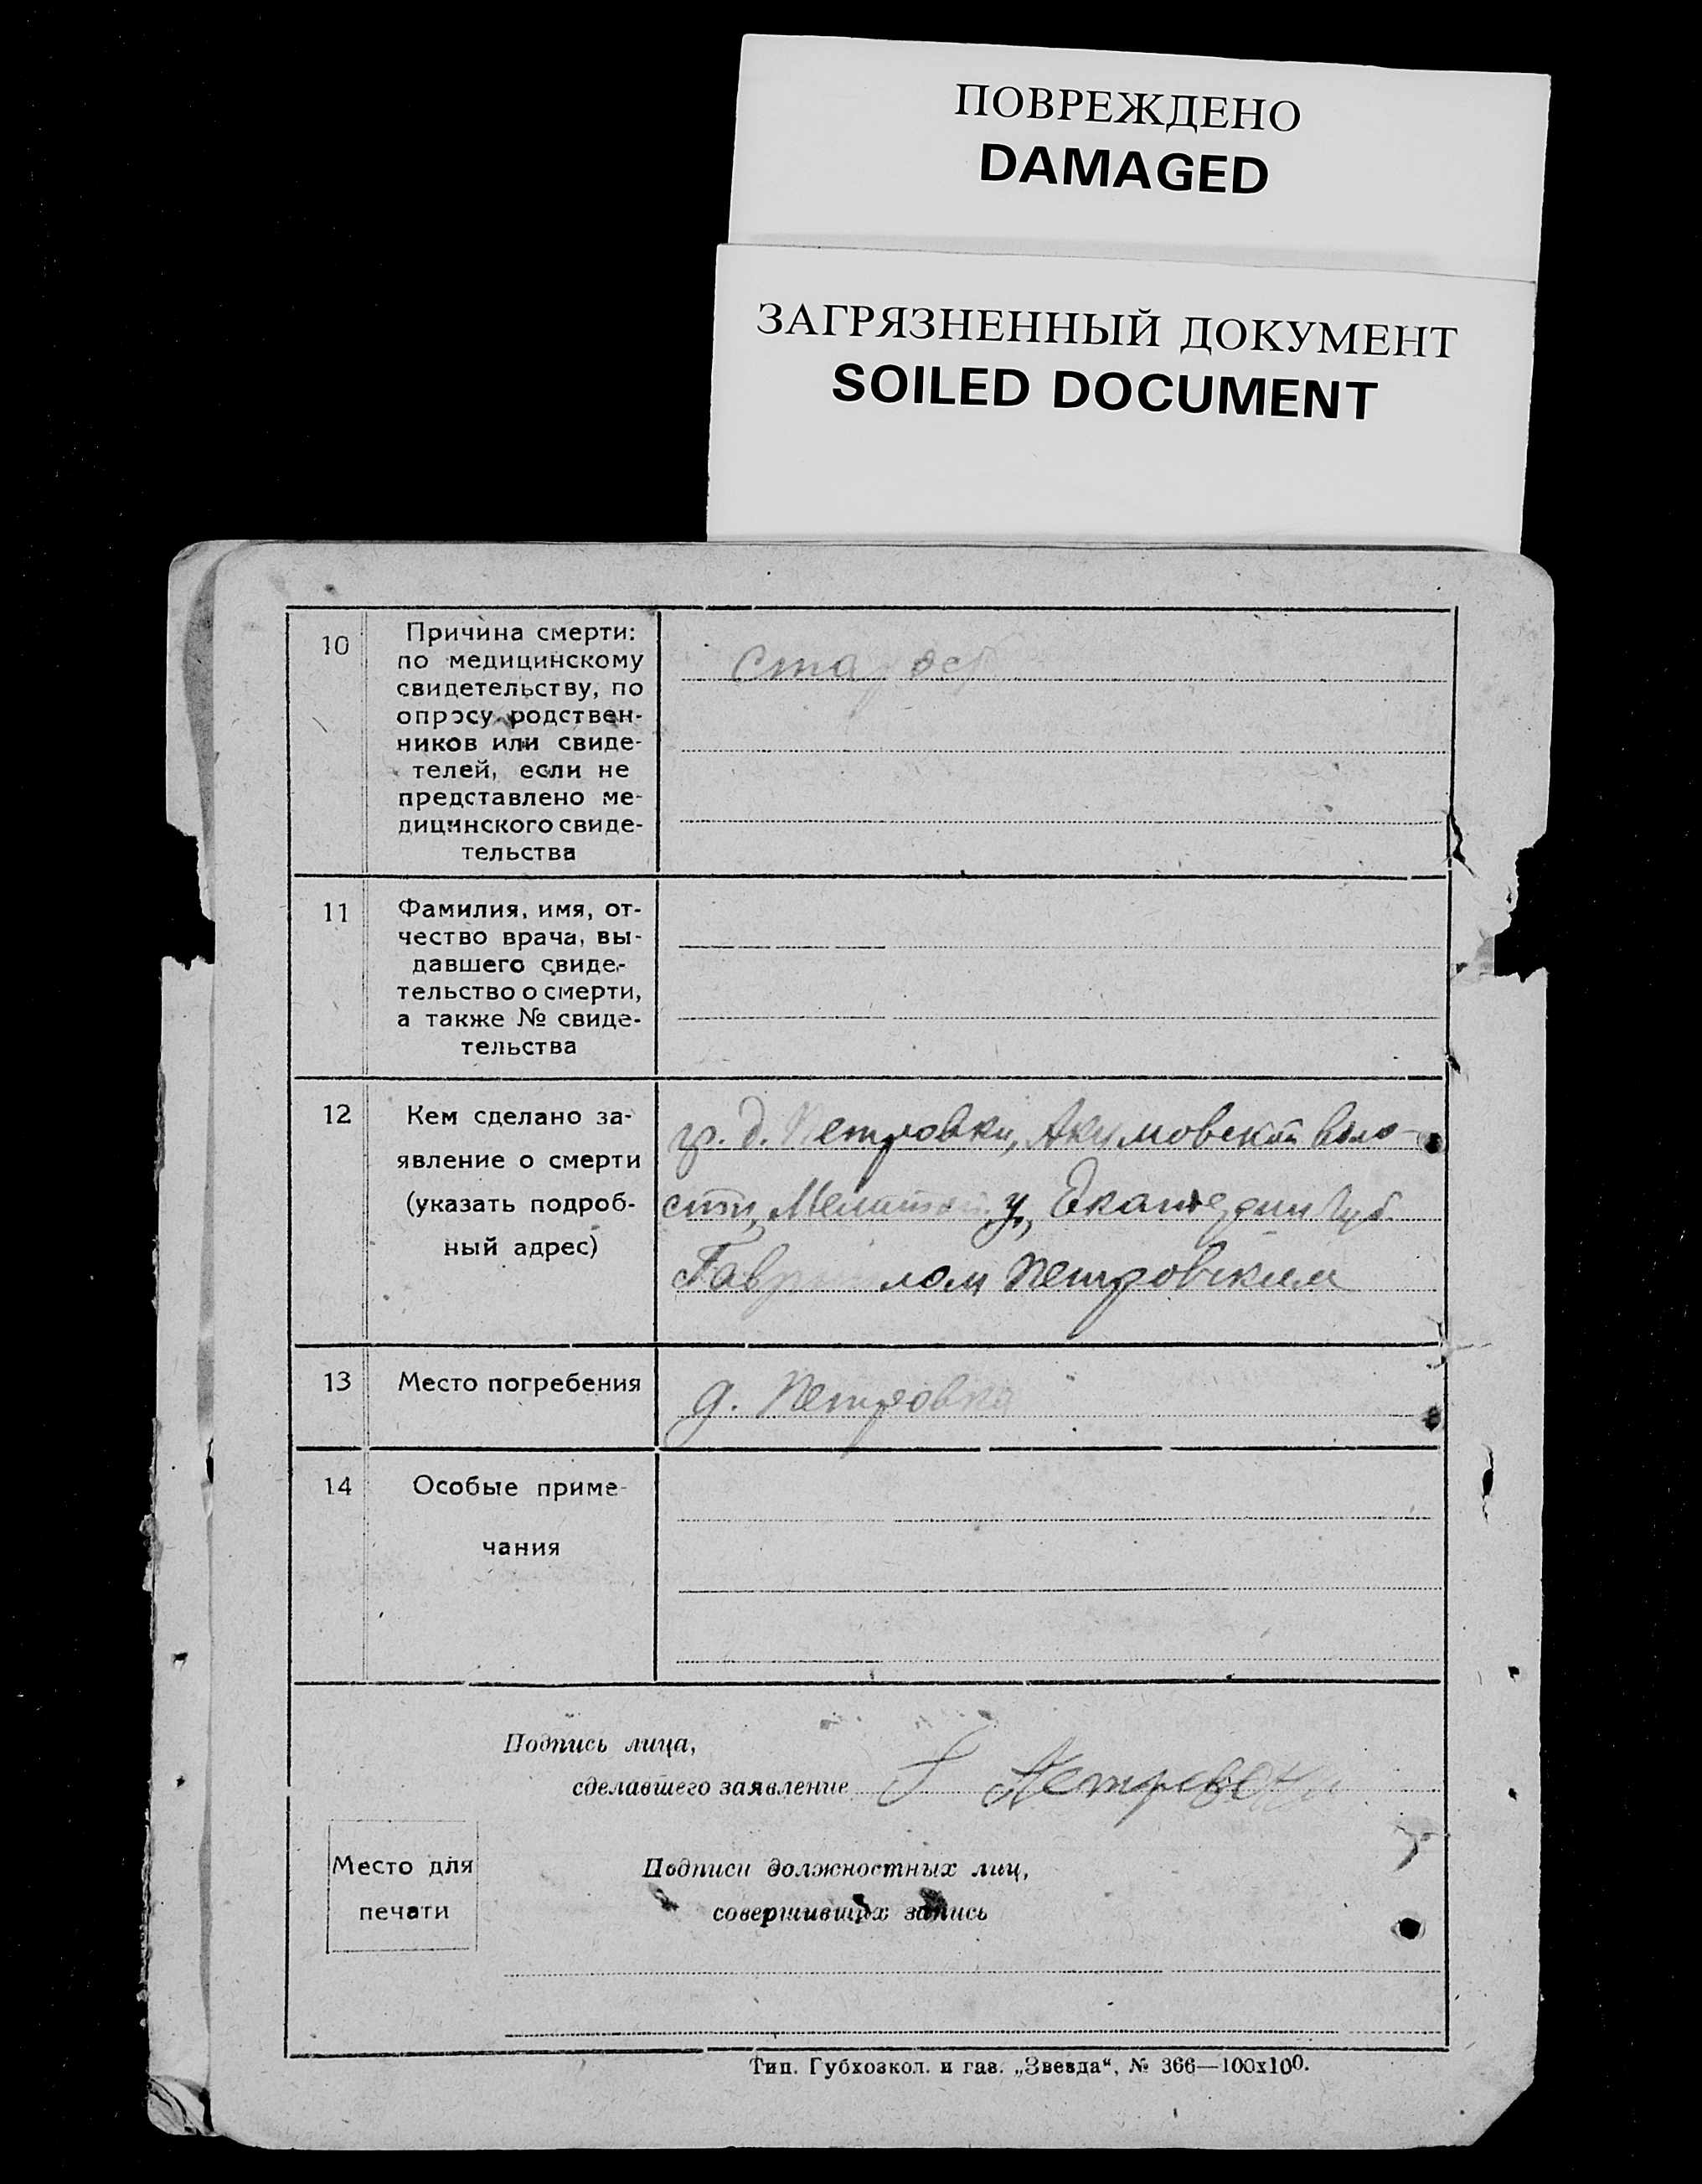 ПОВРЕЖДЕНО
DAMAGED
ЗАГРЯЗНЕННЫЙ ДОКУМЕНТ
SOILED DOCUMENT
10
Причина смерти:
по медицинскому
свидетельству, по
опросу родствен-
ников или свиде-
телей, если не
представлено ме-
дицинского свиде-
тельства
11
Фамилия, имя, от-
чество врача, вы-
давшего свиде-
тельство о смерти,
а также № свиде-
тельства
12
Кем сделано за-
явление о смерти
(указать подроб-
ный адрес)
гр. д. Петровки, Акимовской воло-
сти, у., Губ.
Петровским
13
Место погребения
д. Петровка
14
Особые приме-
чания
Подпись лица,
сделавшего заявление Г
Место для
печати
Подписи должностных лиц,
совершивших запись
Тип. Губхозкол. и газ. „Звезда“, № 366—100х100.